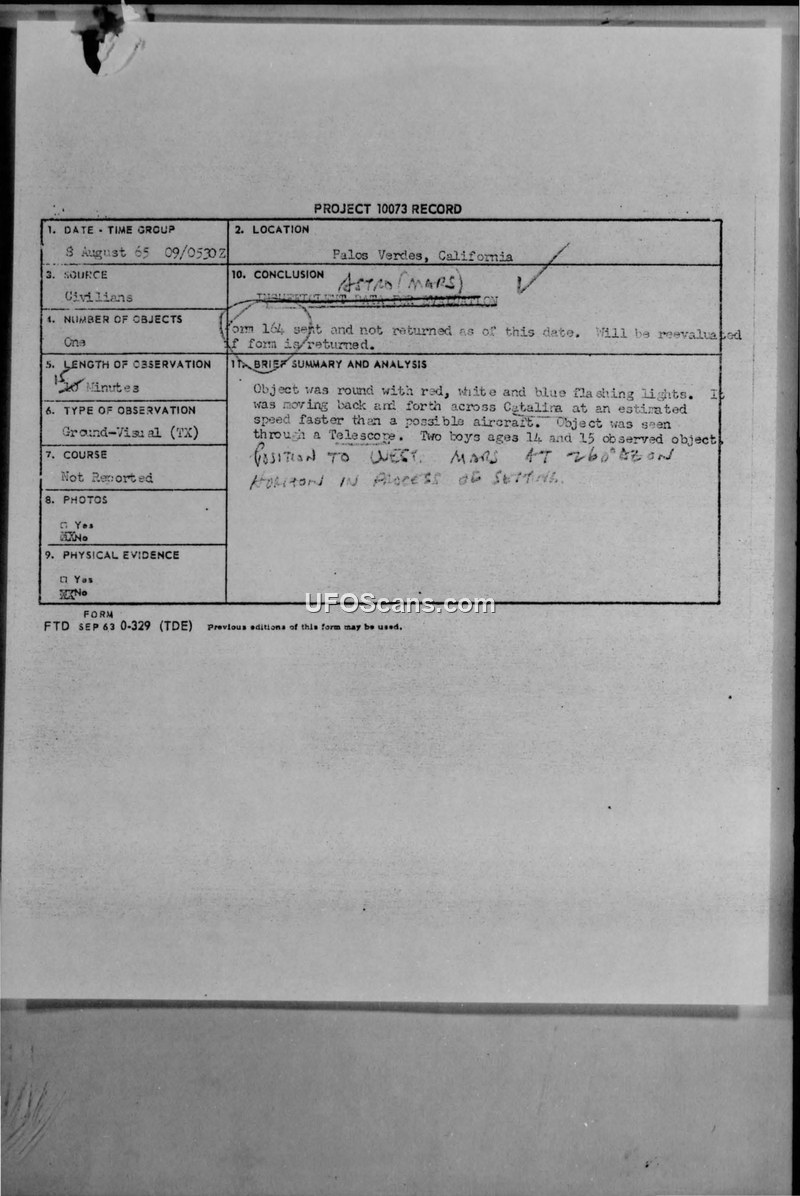 PROJECT 10073 RECORD
1. DATE - TIME GROUP
8 August 65 09/0530Z
2. LOCATION
Palos Verdes, California
3. SOURCE
Civilians
10. CONCLUSION
ASTRO (MARS)
INSUFFICIENT DATA FOR EVALUATION
Form 164 sent and not returned as of this date. Will be reevaluated
if form is returned.
4. NUMBER OF OBJECTS
One
5. LENGTH OF OBSERVATION
15 Minutes
11. BRIEF SUMMARY AND ANALYSIS
Object was round with red, white and blue flashing lights. It
was moving back and forth across Catalina at an estimated
speed faster than a possible aircraft. Object was seen
through a Telescope. Two boys ages 14 and 15 observed object.
POSITION TO WEST. MARS AT 260° AZ ON
HORIZON IN PROCESS OF SETTING.
6. TYPE OF OBSERVATION
Ground-Visual (TX)
7. COURSE
Not Reported
8. PHOTOS
□ Yes
XXNo
9. PHYSICAL EVIDENCE
□ Yes
XXNo
FORM
FTD SEP 63 0-329 (TDE) Previous editions of this form may be used.
UFOScans.com